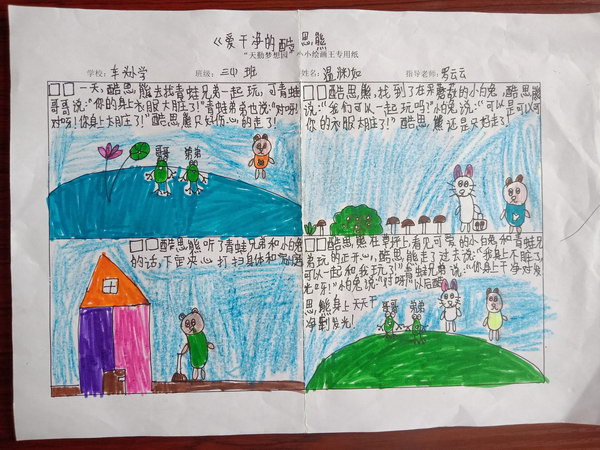 《爱干净的酷思熊
“天勤梦想园”小小绘画王专用纸
学校：车头小学 班级：三(4)班 姓名：温渊如 指导老师：罗云云
一天，酷思熊去找青蛙兄弟一起玩，可青蛙
哥哥说：“你的身上衣服太脏了！”青蛙弟弟也说：“对呀！
对呀！你身上太脏了！”酷思熊只好伤心的走了！
哥哥 弟弟
酷思熊，找到了在采蘑菇的小白兔，酷思熊
说：“我们可以一起玩吗？”小白兔说：“可以是可以可
你的衣服太脏了！”酷思熊还是只好走了！
酷思熊听了青蛙兄弟和小白兔
的话，下定决心打扫身体和
酷思熊在草坪上，看见可爱的小白兔和青蛙兄
弟玩的正开心，酷思熊走了过去说：“我身上不脏了，
可以一起和我玩了！”青蛙兄弟说：“你身上干净对发
光呀！”小白兔说：“对呀！”以后酷
思熊身上天天干
净到发光！
哥哥 弟弟